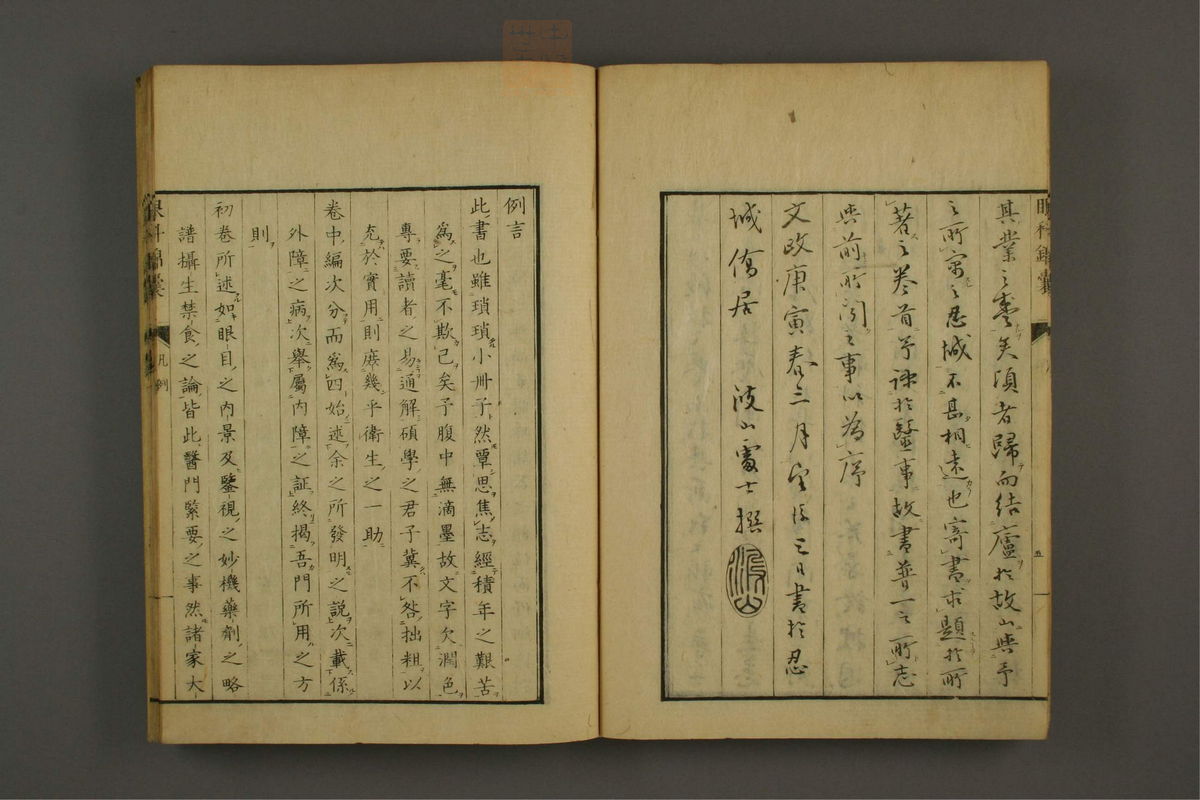 其業之盡矣頃者歸而結廬於故山與予
之所寓之忍城不甚相遠也寄書求題於所
著之卷首予疎於毉事故書普一之所志
與前所聞之事以為序
文政庚寅春三月望後三日書於忍
城僑居 波山處士撰
波山
例言
此書也雖瑣瑣小冊子然覃思焦志經積年之艱苦
爲之毫不欺己矣予腹中無滴墨故文字欠潤色
專要讀者之易通解碩學之君子冀不咎拙粗以
充於實用則庶幾乎衛生之一助
卷中編次分而爲四始述余之所發明之説次載係
外障之病次舉屬内障之証終揭吾門所用之方
則
初卷所述如眼目之内景及鑒視之妙機藥劑之略
譜攝生禁食之論皆此醫門緊要之事然諸家大
眼科錦囊
凡例
五